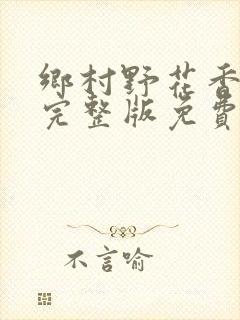 鄉村野花香
完整版免費
不言喻